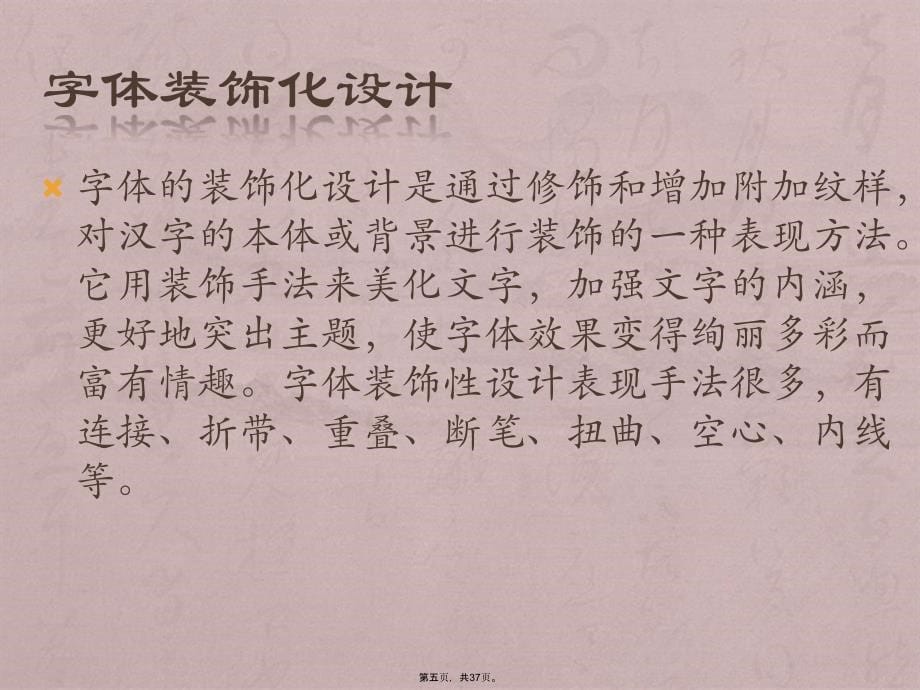 字体装饰化设计
字体的装饰化设计是通过修饰和增加附加纹样，
对汉字的本体或背景进行装饰的一种表现方法。
它用装饰手法来美化文字，加强文字的内涵，
更好地突出主题，使字体效果变得绚丽多彩而
富有情趣。字体装饰性设计表现手法很多，有
连接、折带、重叠、断笔、扭曲、空心、内线
等。
第五页，共37页。